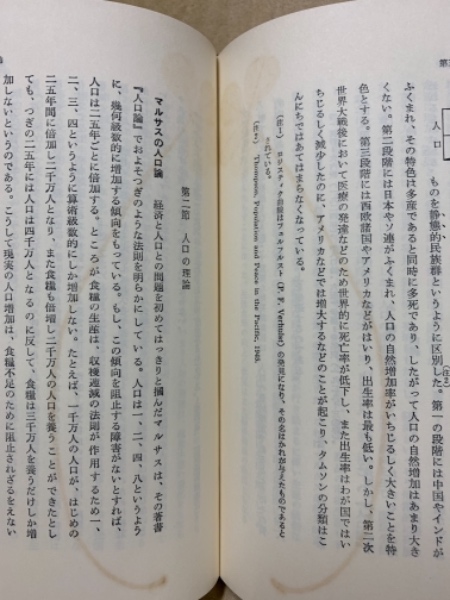 人口
ものを静態的民族群というように区別した。第一の段階には中国やインドが
ふくまれ、その特色は多産であると同時に多死であり、したがって人口の自然増加はあまり大き
くない。第二段階には日本やソ連がふくまれ、人口の自然増加率がいちじるしく大きいことを特
色とする。第三段階には西欧諸国やアメリカなどがはいり、出生率は最も低い。しかし、第二次
世界大戦後において医療の発達などのため世界的に死亡率が低下し、また出生率はわが国ではい
ちじるしく減少したのに、アメリカなどでは増大するなどのことが起こり、タムソンの分類はこ
んにちではあてはまらなくなっている。
(注1) ロジスティック曲線はフェルフルスト (P. F. Verhulst) の発見になり、その名はかれが与えたものであると
されている。
(注2) Thompson, Population and Peace in the Pacific, 1946.
第二節 人口の理論
マルサスの人口論 経済と人口との問題を初めてはっきりと摑んだマルサスは、その著書
『人口論』でおよそつぎのような法則を明らかにしている。人口は一、二、四、八というよう
に、幾何級数的に増加する傾向をもっている。もし、この傾向を阻止する障害がないとすれば、
人口は二五年ごとに倍加する。ところが食糧の生産は、収穫逓減の法則が作用するため一、
二、三、四というように算術級数的にしか増加しない。たとえば、一千万人の人口が、はじめの
二五年間に倍加し二千万人となり、また食糧も倍増し二千万人の人口を養うことができたとし
ても、つぎの二五年には人口は四千万人となるのに反して、食糧は三千万人を養うだけしか増
加しないというのである。こうして現実の人口増加は、食糧不足のために阻止されざるをえない